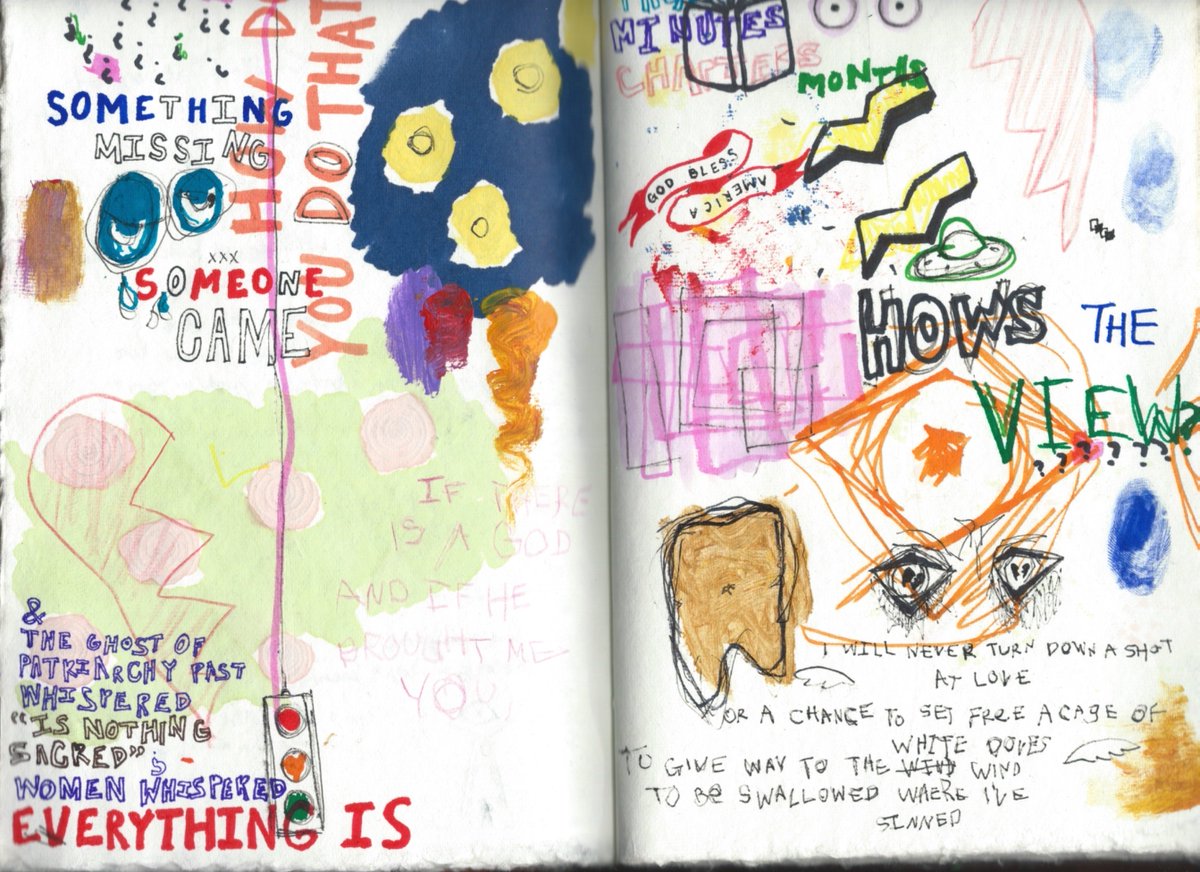 SOMETHING
MISSING
xxx
SOMEONE
CAME
HOW DO
YOU DO THAT
IF THERE
IS A GOD
AND IF HE
BROUGHT ME
YOU,
&
THE GHOST OF
PATRIARCHY PAST
WHISPERED
"IS NOTHING
SACRED" &
WOMEN WHISPERED
EVERYTHING IS
MINUTES
CHAPTERS
MONTHS
GOD BLESS
AMERICA
HOWS THE
VIEW?
????????
I WILL NEVER TURN DOWN A SHOT
AT LOVE
OR A CHANCE TO SET FREE A CAGE OF
WHITE DOVES
TO GIVE WAY TO THE WIND WIND
TO BE SWALLOWED WHERE I'VE
SINNED